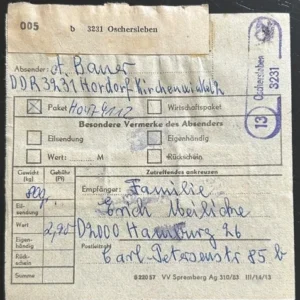 005 b 3231 Oschersleben
Absender: A. Bauer
DDR 3231 Hordorf
Paket
Wirtschaftspaket
Besondere Vermerke des Absenders
Eilsendung
Eigenhändig
Wert: M
Rückschein
Zutreffendes ankreuzen
Gewicht (kg)
Gebühr (Pf)
Eilsendung
Wert 2,90
Eigenhändig
Rückschein
Empfänger: Familie
Erich
D2000 Hamburg 26
Postleitzahl
Carl Petersenstr 85 b
Oschersleben
3231
13
VV Spremberg Ag 310/63 III/14/13